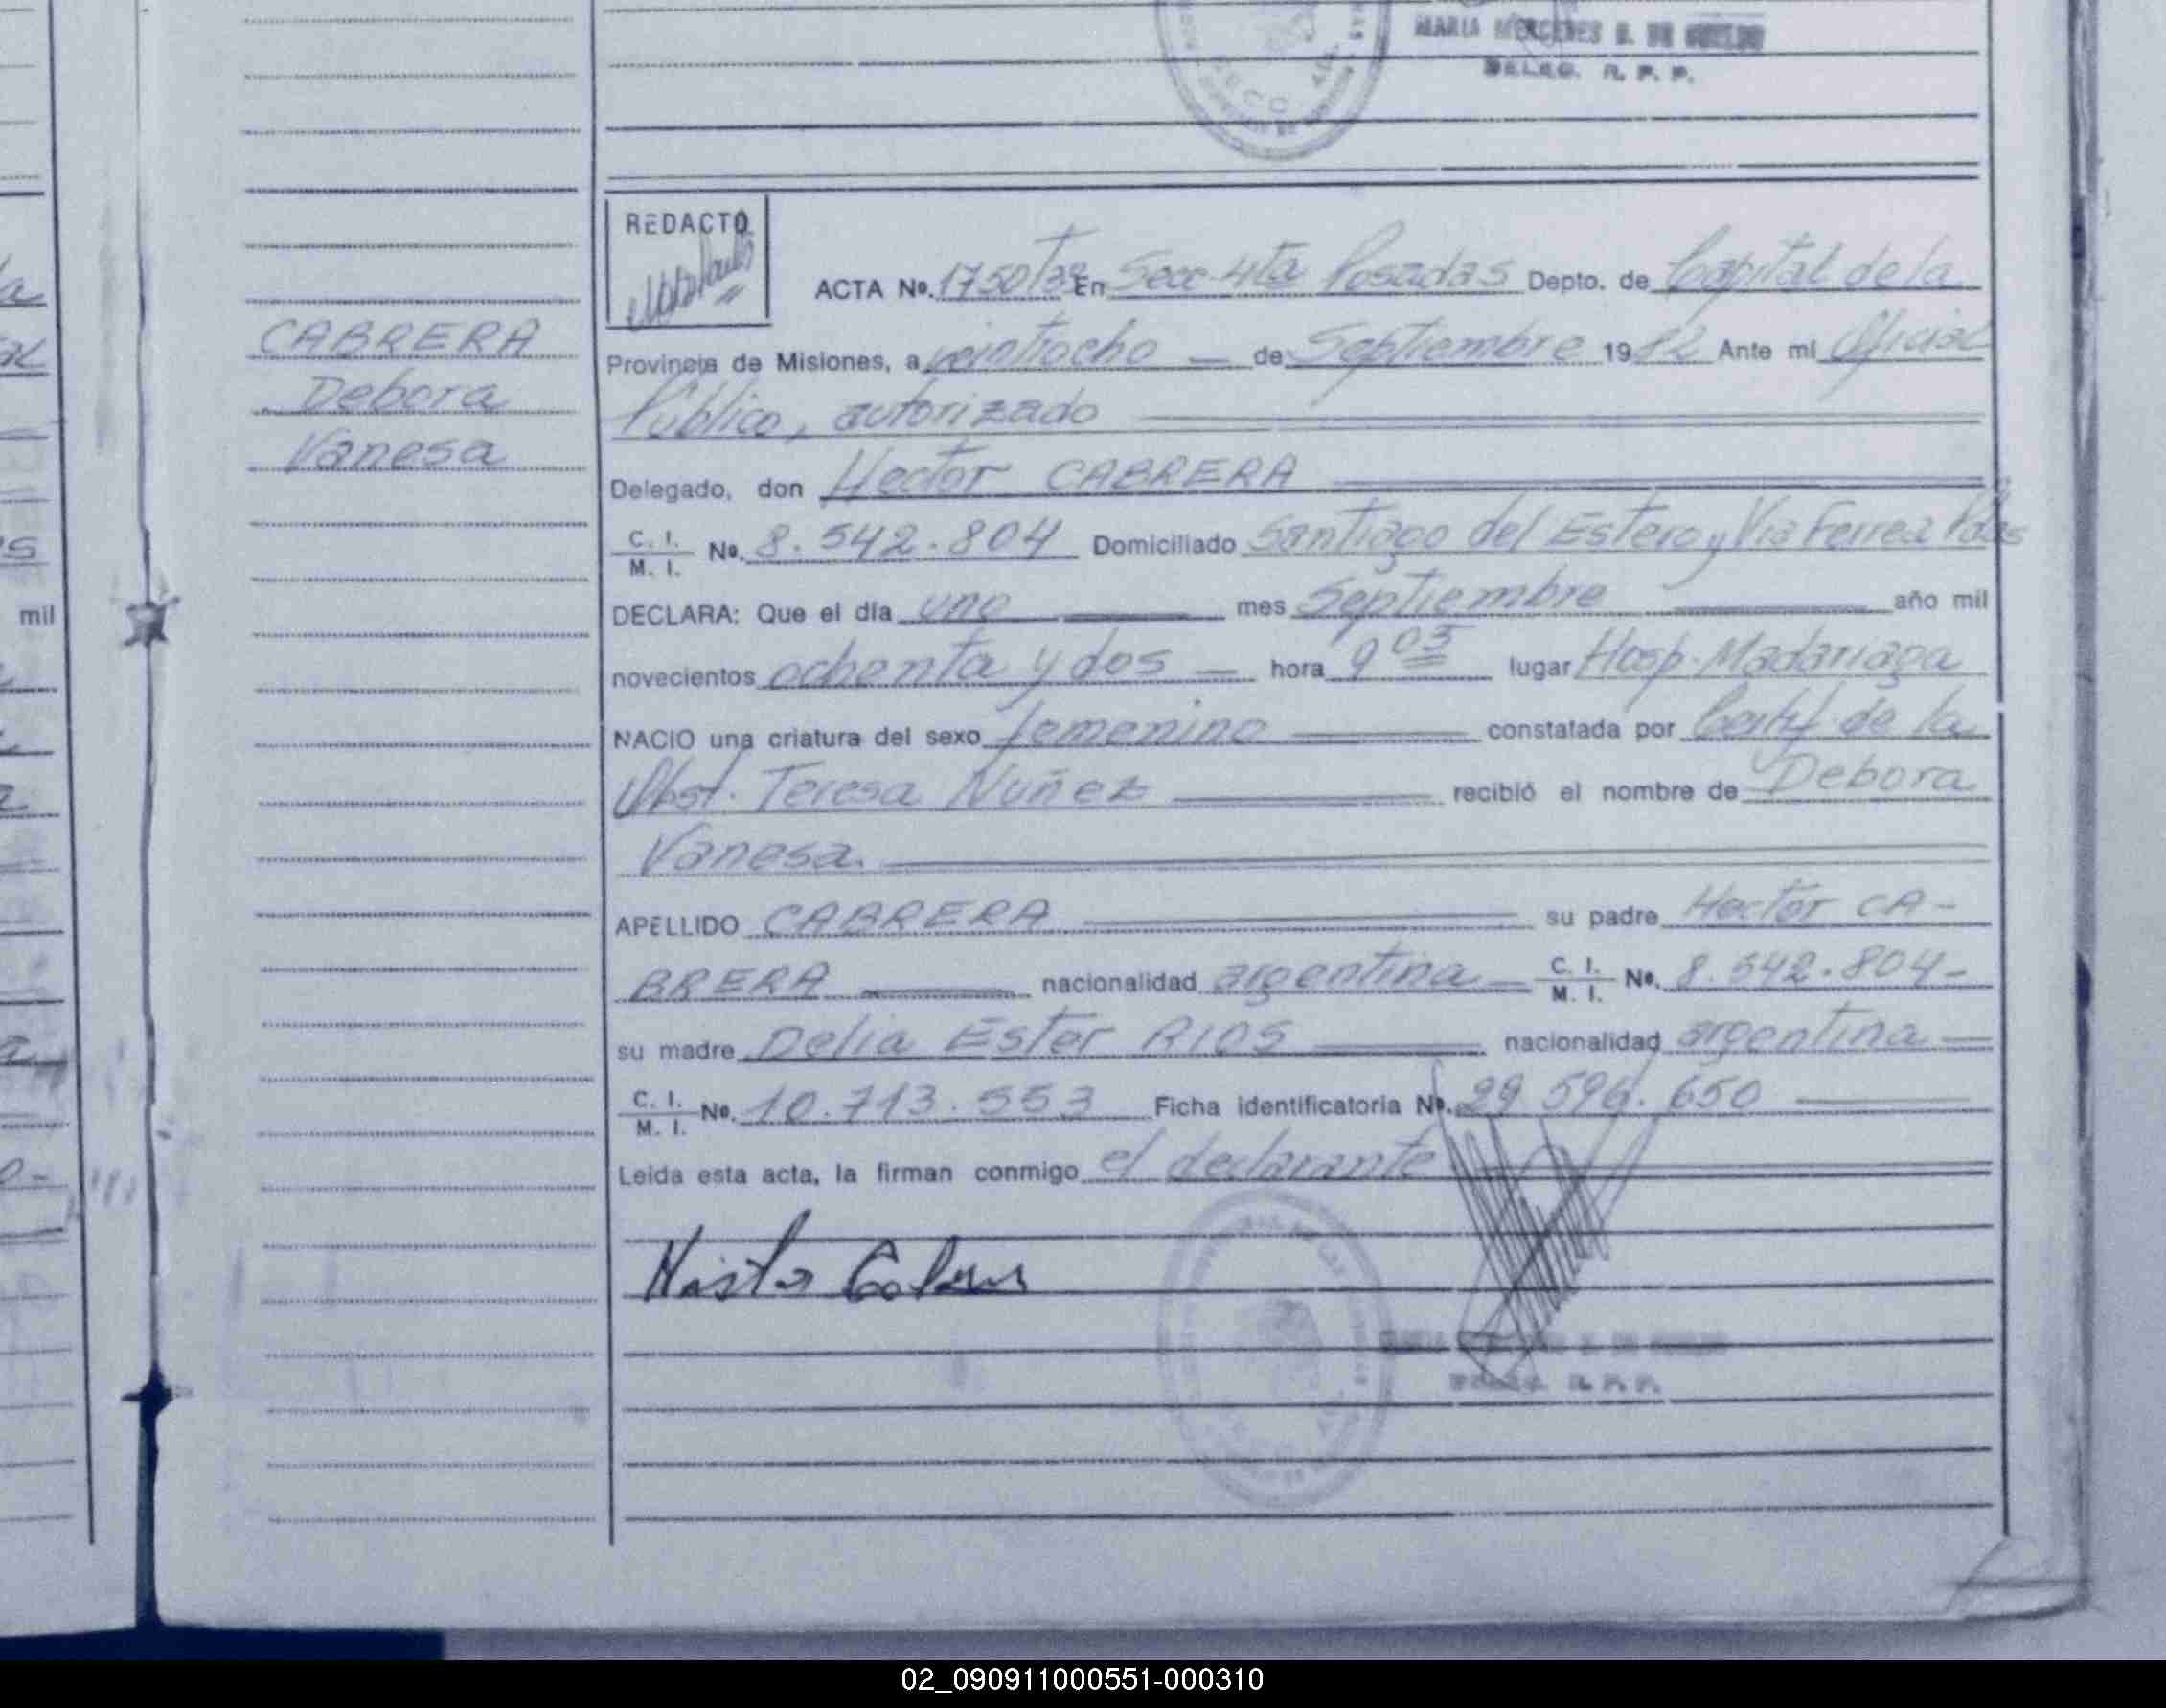 MARIA MERCEDES
DELEG. R. P. P.
REDACTÓ
CABRERA
Debora
Vanesa
ACTA Nº. 1750 En Secc 4ta Posadas Depto. de Capital de la
Provincia de Misiones, a veintiocho — de Septiembre 1982 Ante mi Oficial
Público, autorizado
Delegado, don Hector CABRERA
C. I. / M. I. Nº. 8.542.804 Domiciliado Santiago del Estero y Via Ferrea Pdas
DECLARA: Que el día uno mes Septiembre año mil
novecientos ochenta y dos — hora 9 05 lugar Hosp. Madariaga
NACIO una criatura del sexo femenino constatada por Certif. de la
Obst. Teresa Nuñez recibió el nombre de Debora
Vanesa.
APELLIDO CABRERA su padre Hector CA-
BRERA nacionalidad argentina — C. I. / M. I. Nº. 8.542.804-
su madre Delia Ester RIOS nacionalidad argentina —
C. I. / M. I. Nº. 10.713.553 Ficha identificatoria Nº. 29 596. 650
Leida esta acta, la firman conmigo el declarante
DELEG. R. P. P.
mil
02_090911000551-000310